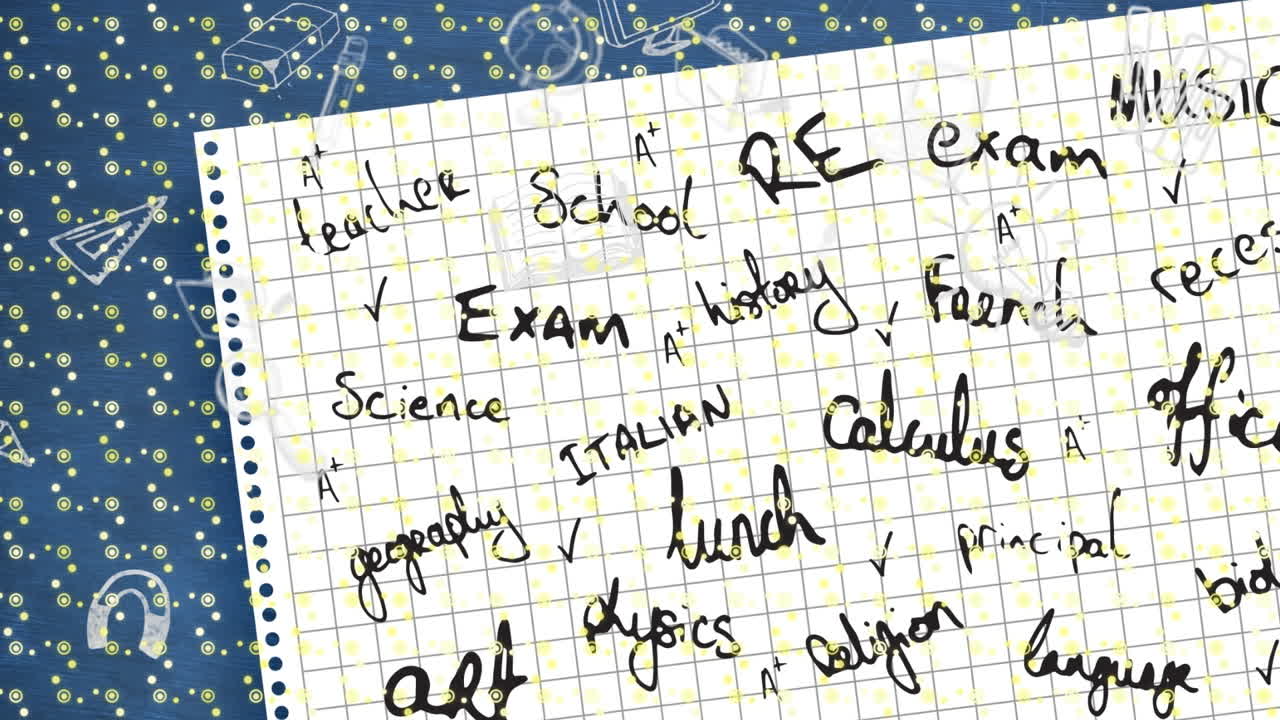 MUSIC
A+
RE exam
A+
teacher School
A+
reces
history French
Exam
A+
Science
offic
ITALIAN calculus
A+
A+
geography lunch principal
biol
physics religion
language
A+
art